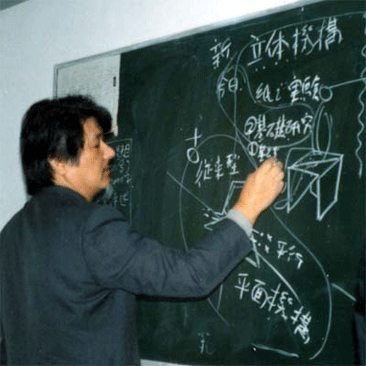 新 立体機構
今日
紙で実験
②基礎研究
①
従来型
平行
平面機構